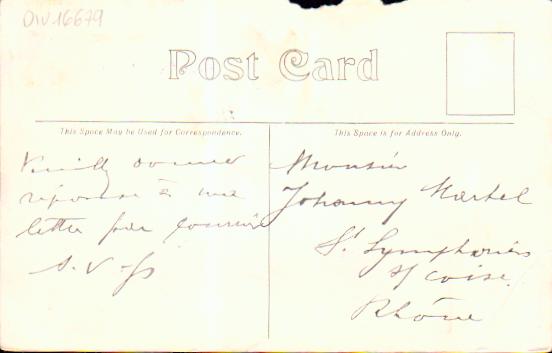 DIV.16679
Post Card
This Space May be Used for Correspondence.
This Space is for Address Only.
Veuillez donner
réponse à une
letter par courrier
S. V. P
Monsieur
Johanny
St Symphorien
s/ Coise
Rhône